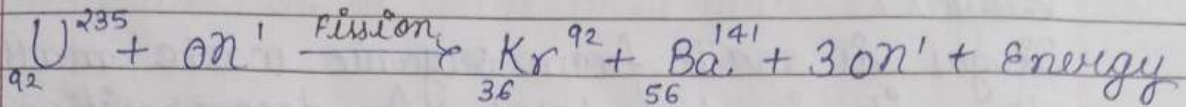 ₉₂U²³⁵ + 0n¹ Fission→ ₃₆Kr⁹² + ₅₆Ba¹⁴¹ + 3 0n¹ + Energy